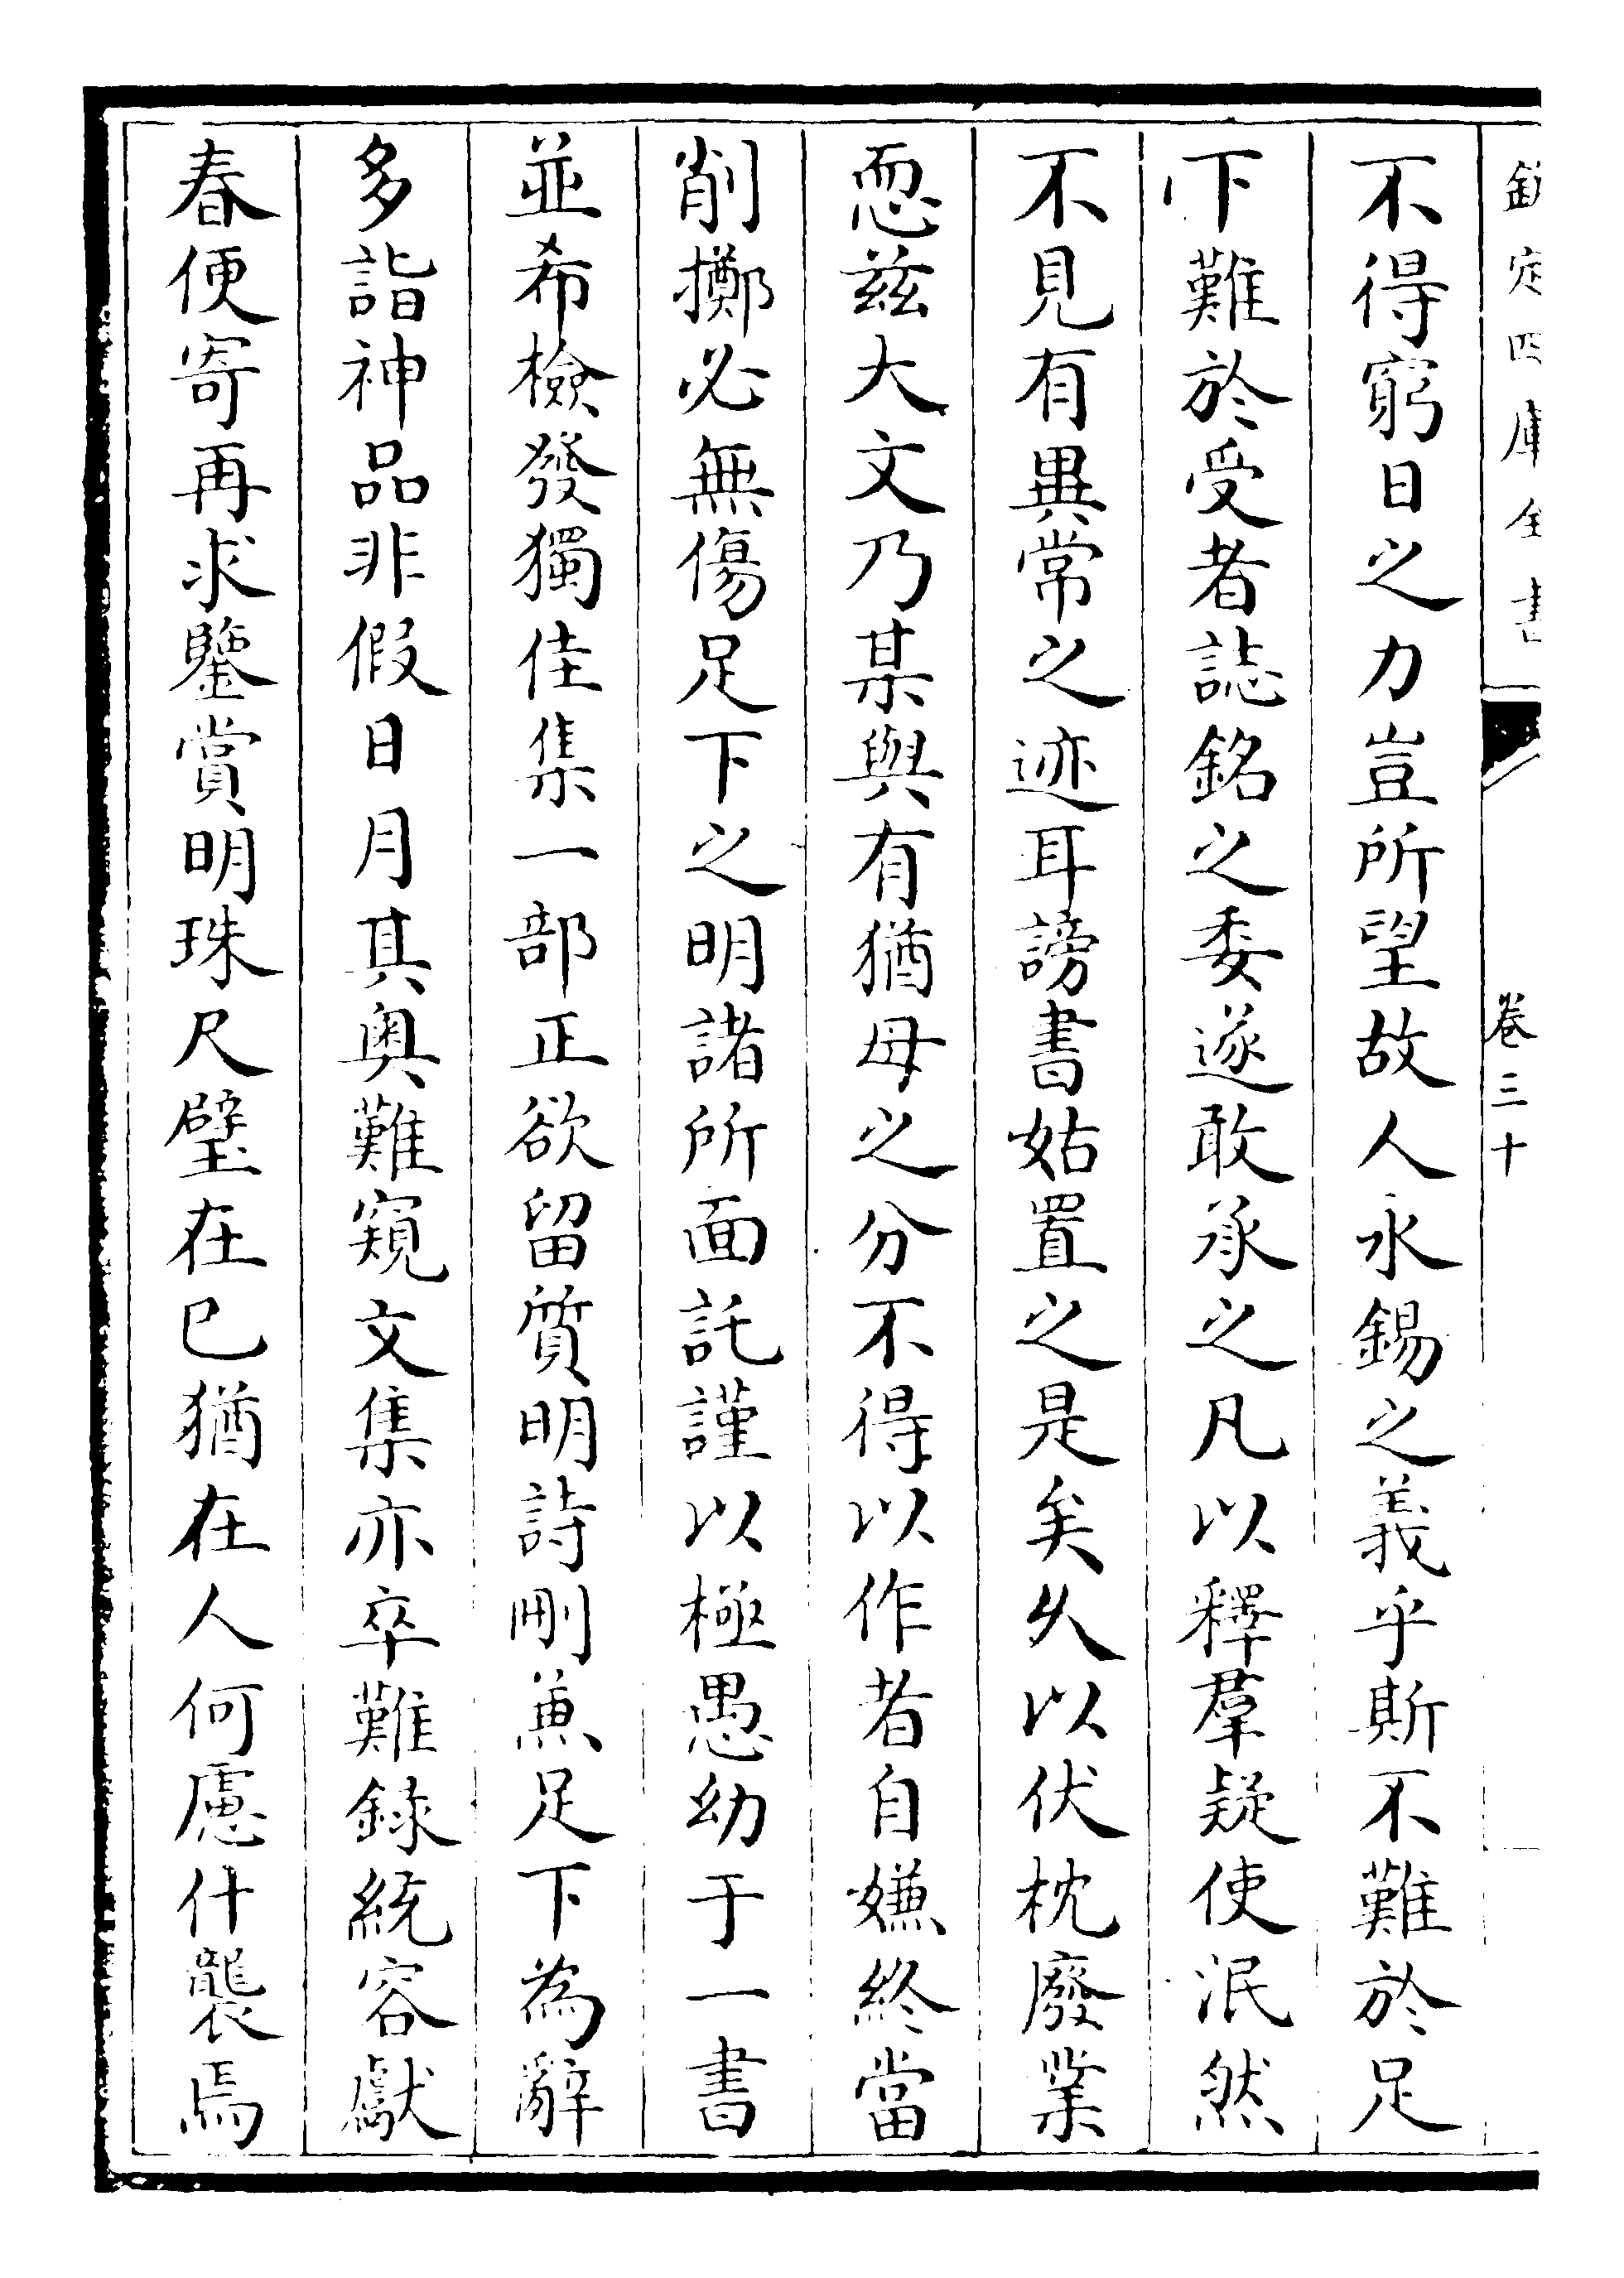 欽定四庫全書
卷三十
不得窮日之力豈所望故人永錫之義乎斯不難於足
下難於受者誌銘之委遂敢承之凡以釋羣疑使泯然
不見有異常之迹耳謗書姑置之是矣乆以伏枕廢業
恧兹大文乃某與有猶母之分不得以作者自嫌終當
削擲必無傷足下之明諸所面託謹以極愚幼于一書
並希檢發獨佳集一部正欲留質明詩刪兼足下為辭
多詣神品非假日月其奥難窺文集亦卒難錄統容獻
春便寄再求鑒賞明珠尺璧在已猶在人何慮什襲焉